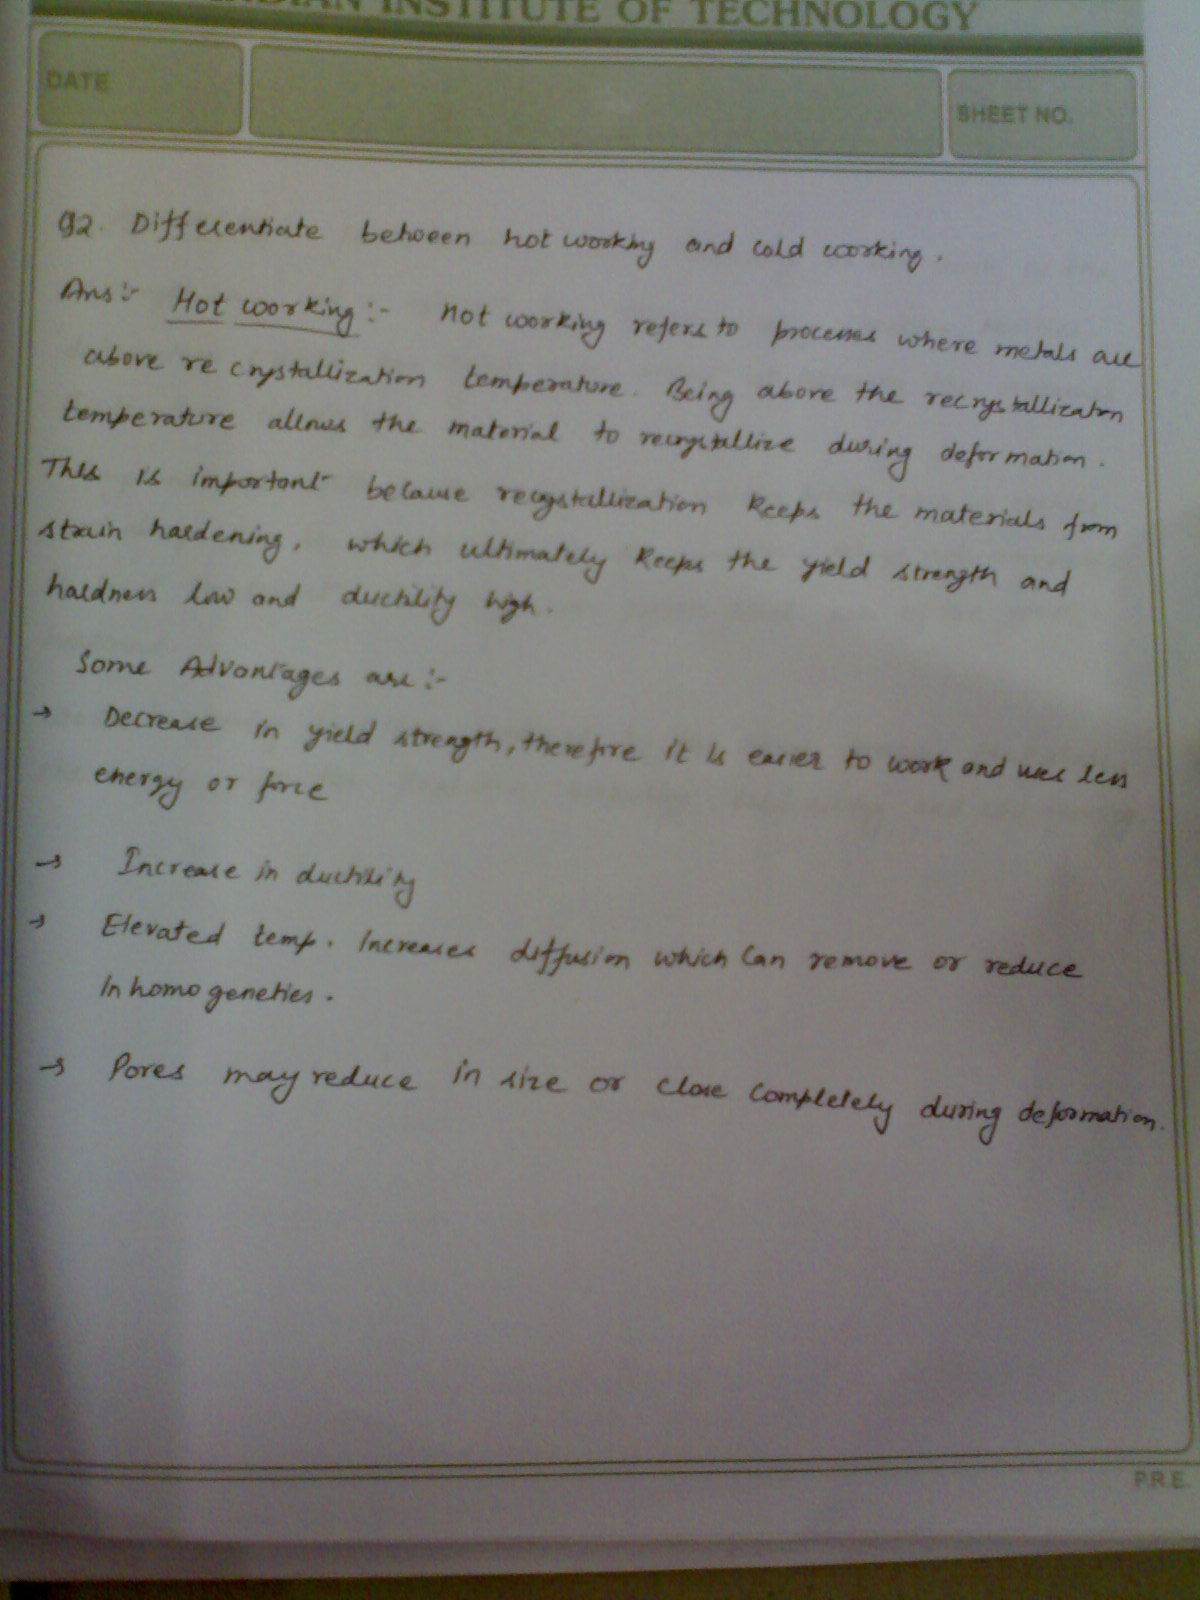 INSTITUTE OF TECHNOLOGY
DATE
SHEET NO.
Q2. Differentiate between hot working and cold working.
Ans:- Hot working :- Hot working refers to processes where metals are
above re crystallization temperature. Being above the recrystallization
temperature allows the material to recrystallize during deformation.
This is important because recrystallization keeps the materials from
strain hardening, which ultimately keeps the yield strength and
hardness low and ductility high.
Some Advantages are :-
→ Decrease in yield strength, therefore it is easier to work and uses less
energy or force
→ Increase in ductility
→ Elevated temp. increases diffusion which can remove or reduce
In homo geneties.
→ Pores may reduce in size or close completely during deformation.
P.R.E.